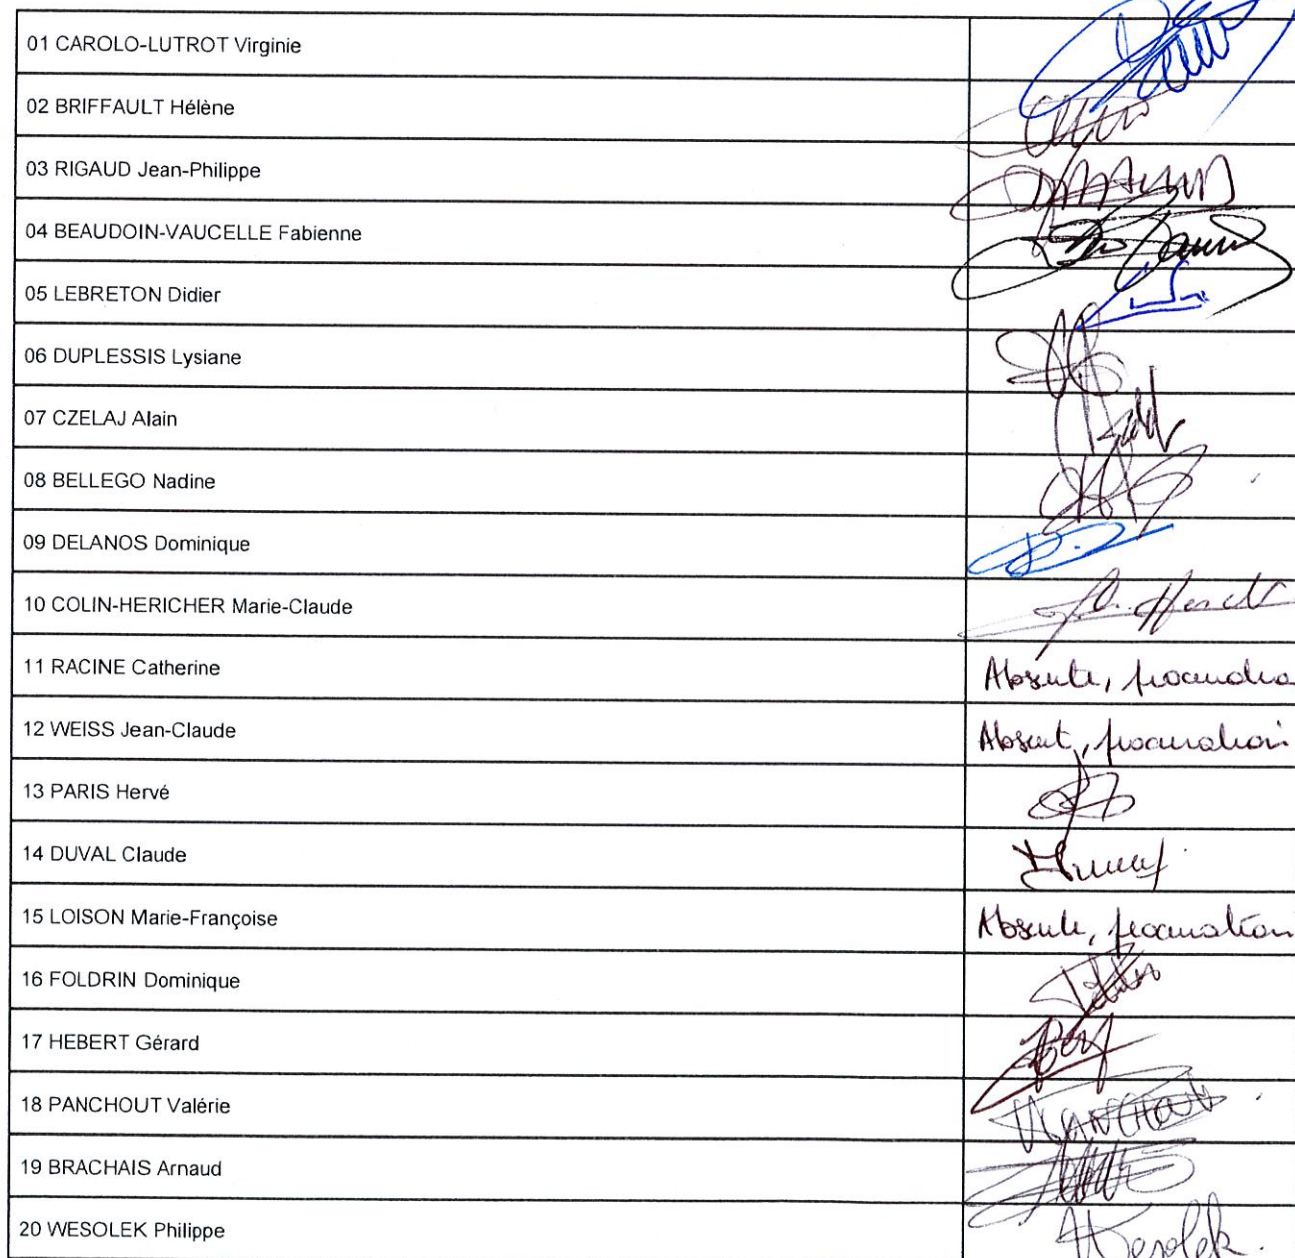 01 CAROLO-LUTROT Virginie
02 BRIFFAULT Hélène
03 RIGAUD Jean-Philippe
04 BEAUDOIN-VAUCELLE Fabienne
05 LEBRETON Didier
06 DUPLESSIS Lysiane
07 CZELAJ Alain
08 BELLEGO Nadine
09 DELANOS Dominique
10 COLIN-HERICHER Marie-Claude
11 RACINE Catherine Absente,
12 WEISS Jean-Claude Absent, procuration
13 PARIS Hervé
14 DUVAL Claude
15 LOISON Marie-Françoise Absente, procuration
16 FOLDRIN Dominique
17 HEBERT Gérard
18 PANCHOUT Valérie
19 BRACHAIS Arnaud
20 WESOLEK Philippe Wesolek